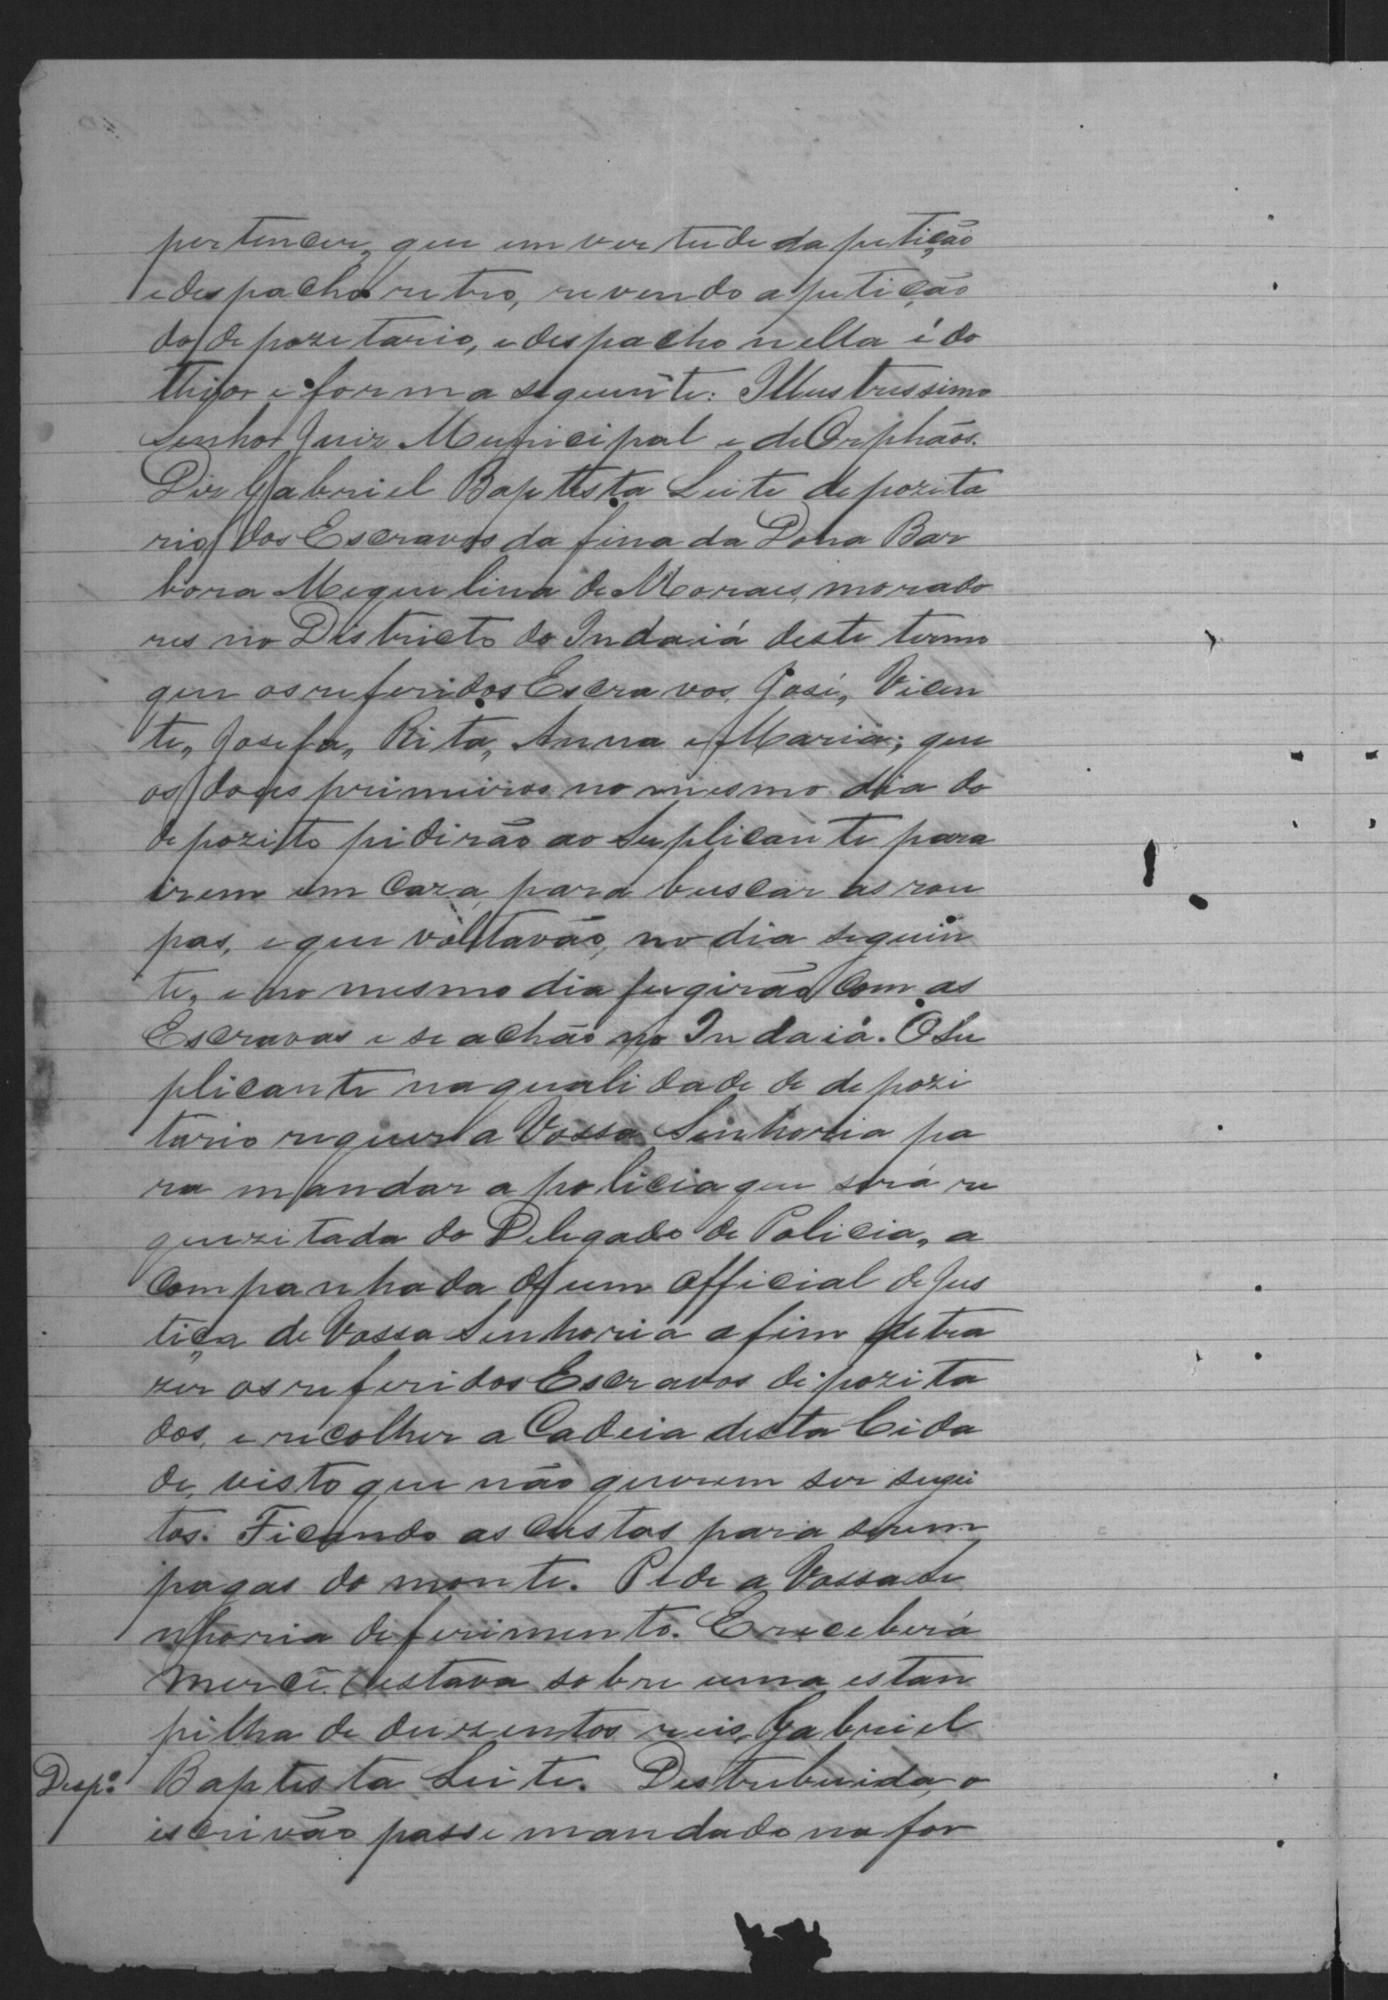 pertencer, que em vertude da petição
e despacho retro, revendo a petição
do depozetario, e despacho nella é do
theor e forma seguinte: Illustrissimo
Senhor Juiz Municipal e de Orphãos.
Diz Gabriel Baptista Leite depozita
rio dos Escravos da fina da Dona Bar
bora Mequelina de Moraes, morado
res no Districto do Indaiá deste termo
que os referidos Escravos, José, Vicen
te, Josefa, Rita, Anna e Maria; que
os does primeiros no mesmo dia do
depozito pidirão ao Suplicante para
irem em Caza para buscar as rou
pas, e que voltavão, no dia seguin
te, e no mesmo dia fugirão com as
Escravas e se achão no Indaiá. O Su
plicante na qualidade de depozi
tario requer a Vossa Senhoria pa
ra mandar a policia que será re
quezitada do Delegado de Policia, a
companhada de um official de Jus
tiça de Vossa Senhoria afim de tra
zer os referidos Escravos depozita
dos, e recolher a Cadeia desta Cida
de, visto que não querem ser sugei
tos. Ficando as custas para serem
pagas do monte. Pede a Vossa Se
nhoria deferimento. E receberá
Mercê. (estava sobre uma estan
pilha de duzentos reis, Gabriel
Desp.º Baptista Leite. Destribuida, o
escrivão passe mandado na for